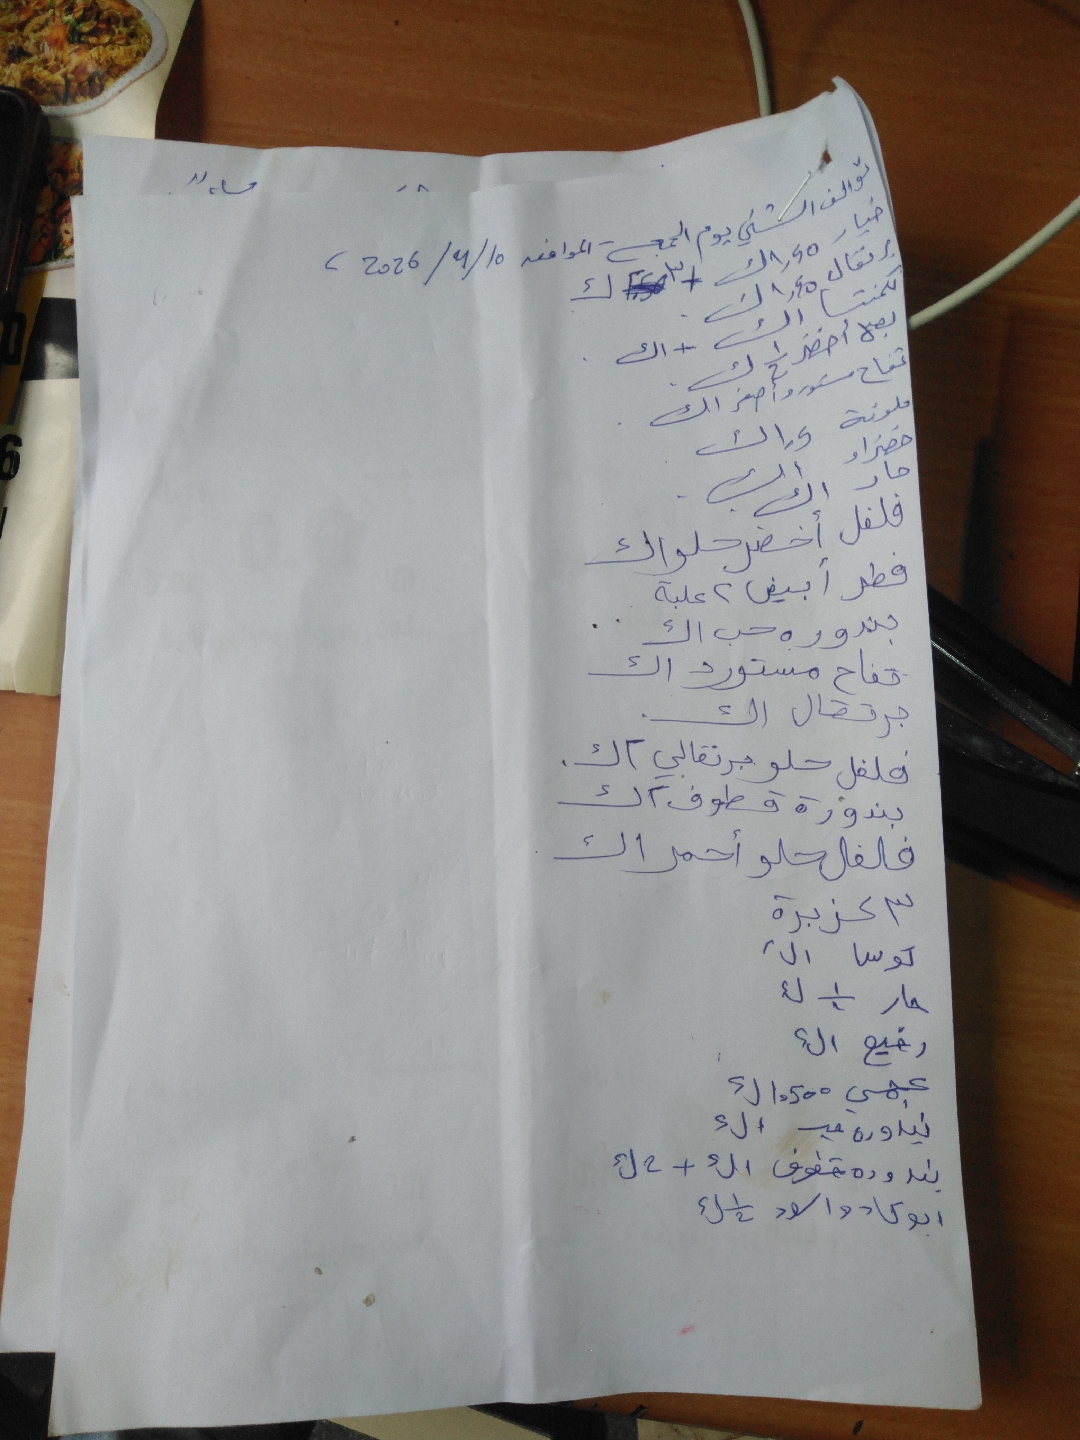 توالف الشني يوم الجمعة الموافق 2026/4/10
خيار ١,٩٥ ك + ٣ ك
برتقال ١,٤٥ ك
كمنتينا ١ك + ١ك
بصل أخضر ك
تفاح سكري وأصفر ١ك
ملونة ١ك
خضراء ١ك
حار ١ك
فلفل أخضر حلو ١ك
فطر أبيض ٢ علبة
بندوره حب ١ك
تفاح مستورد ١ك
برتقال ١ك
فلفل حلو برتقالي ٢ك
بندورة قطوف ٢ك
فلفل حلو أحمر ١ك
٣ كزبرة
كوسا ١ك
حار ١/٢ ك
رفيع ١ك
عجمي ١.٥٠٠ك
بندوره ١ك
بندوره قطوف ١ك + 2ك
ابوكادو اسود ١/٢ك